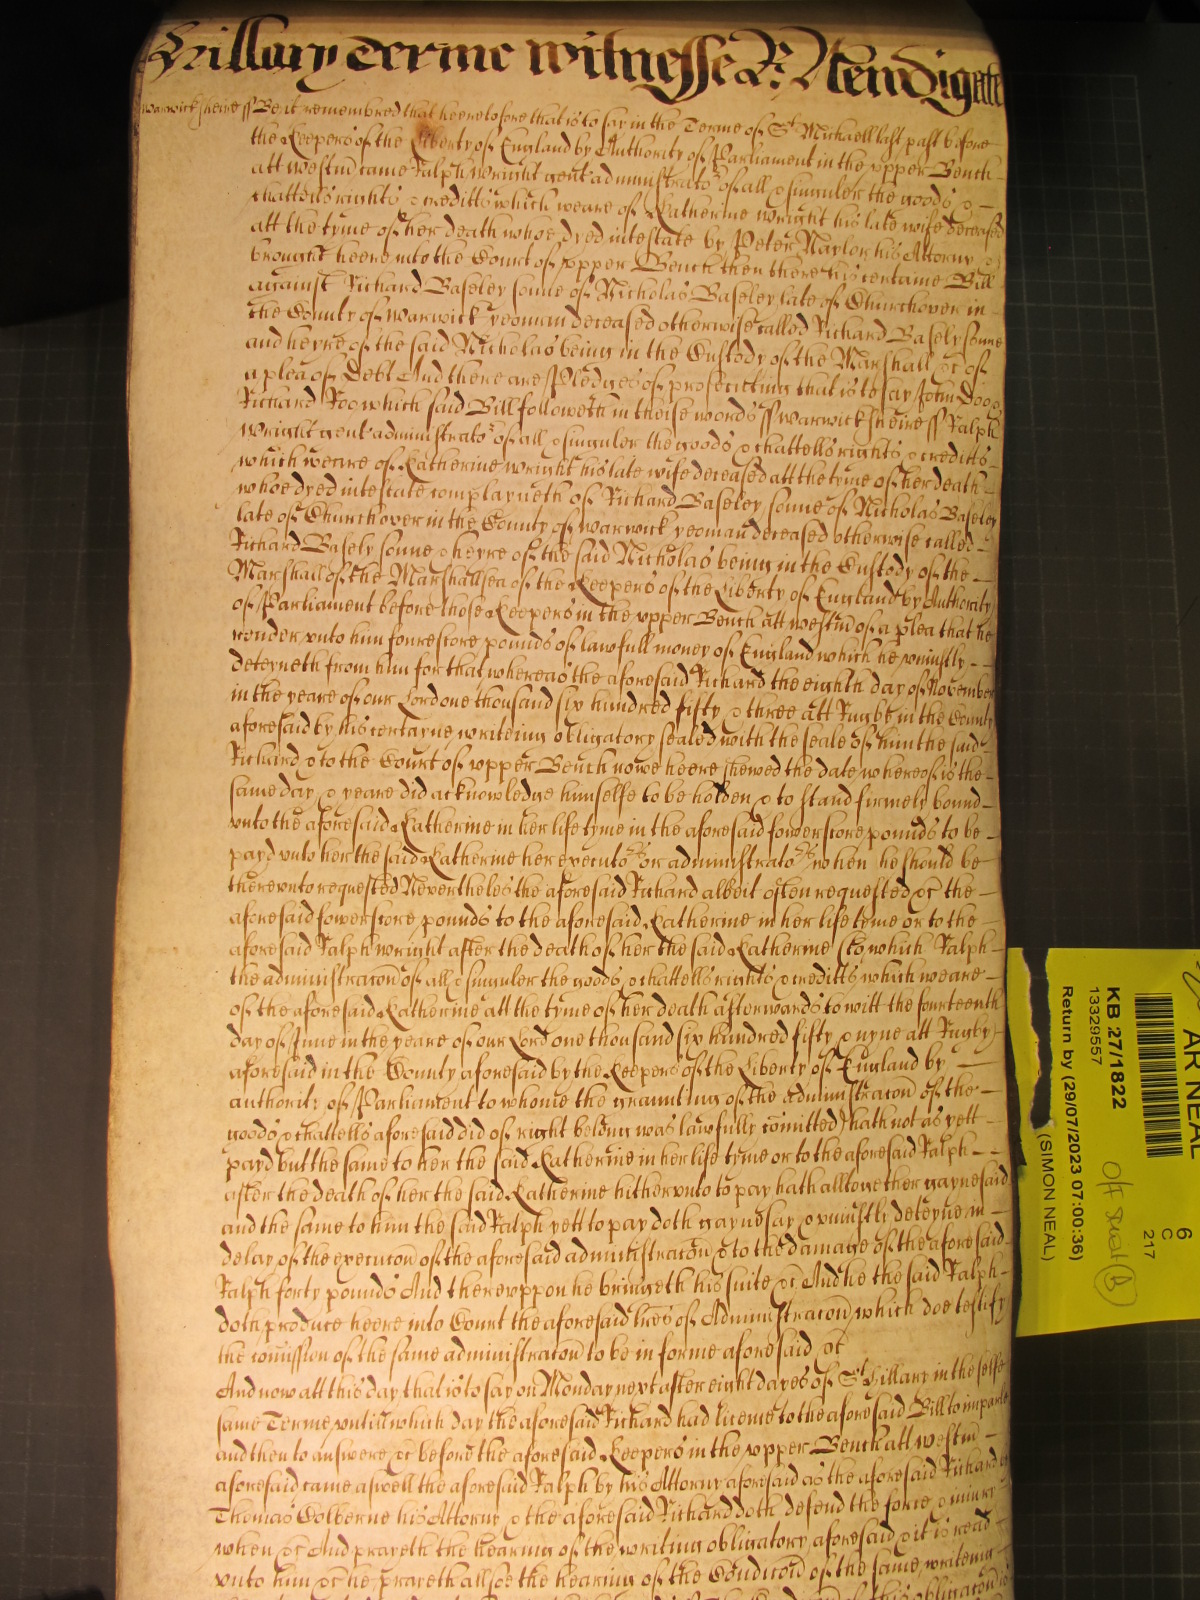 Hillary Terme witnesse R: Newdigate
Warwicksheire ss Be it remembred that heeretofore that is to say in the Terme of St Michaell last past before
the Keepers of the Liberty of England by Authority of Parliament in the vpper Bench
att Westm came Ralph Wright gent administrator of all & singuler the goods &
chattells rights & creditts which weare of Katherine Wright his late wife deceased
att the tyme of her death whoe dyed intestate by Peter Naylor his Attorny &
brought heere into the Court of vpper Bench then there his certaine Bill
against Richard Baseley sonne of Nicholas Baseley late of Churchover in
the County of Warwick yeoman deceased otherwise called Richard Basely sonne
and heyre of the said Nicholas being in the Custody of the Marshall &c of
a plea of Debt And there are Pledges of prosecuting that is to say John Doo &
Richard Roo which said Bill followeth in theise words ss Warwicksheire ss Ralph
Wright gent administrator of all & singuler the goods & chattells rights & creditts
which weare of Katherine Wright his late wife deceased att the tyme of her death
whoe dyed intestate complayneth of Richard Baseley sonne of Nicholas Baseley
late of Churchover in the County of Warwick yeoman deceased otherwise called
Richard Basely sonne & heyre of the said Nicholas being in the Custody of the
Marshall of the Marshallsea of the Keepers of the Liberty of England by Authority
of Parliament before those Keepers in the vpper Bench att Westm of a plea that he
render vnto him fourescore pounds of lawfull money of England which he vniustly
deteyneth from him for that whereas the aforesaid Richard the eighth day of November
in the yeare of our Lord one thousand six hundred fifty & three att Rugby in the County
aforesaid by his certayne writeing obligatory sealed with the seale of him the said
Richard & to the Court of vpper Bench nowe heere shewed the date whereof is the
same day & yeare did acknowledge himselfe to be holden & to stand firmely bound
vnto the aforesaid Katherine in her life tyme in the aforesaid fowerscore pounds to be
payd vnto her the said Katherine her executors or administrators when he should be
therevnto requested Nevertheles the aforesaid Richard albeit often requested &c the
aforesaid fowerscore pounds to the aforesaid Katherine in her life tyme or to the
aforesaid Ralph Wright after the death of her the said Katherine (to which Ralph
the administracon of all & singuler the goods & chattells rights & creditts which weare
of the aforesaid Katherine att the tyme of her death afterwards to witt the fourteenth
day of June in the yeare of our Lord one thousand six hundred fifty & nyne att Rugby
aforesaid in the County aforesaid by the Keepers of the Liberty of England by
authority of Parliament to whome the graunting of the Administracon of the
goods & chattells aforesaid did of right belong was lawfully comitted) hath not as yett
payd but the same to her the said Katherine in her life tyme or to the aforesaid Ralph
after the death of her the said Katherine hithervnto to pay hath alltogether gaynesaid
and the same to him the said Ralph yett to pay doth gaynesay & vniustly deteyne in
delay of the execucon of the aforesaid administracon & to the damage of the aforesaid
Ralph forty pounds And therevppon he bringeth his suite &c And he the said Ralph
doth produce heere into Court the aforesaid lres of Administracon which doe testify
the comission of the same administracon to be in forme aforesaid &c
And now att this day that is to say on Monday next after eight dayes of St Hillary in the selfe
same Terme vntill which day the aforesaid Richard had licence to the aforesaid Bill to imparle
and then to answere &c before the aforesaid Keepers in the vpper Bench att Westm
aforesaid came aswell the aforesaid Ralph by his Attorny aforesaid as the aforesaid Richard by
Thomas Colberne his Attorny & the aforesaid Richard doth defend the force & iniury
when &c And prayeth the hearing of the writing obligatory aforesaid & it is read
vnto him &c he prayeth allsoe the hearing of the Condicon of the same writeing
AR NEAL
KB 27/1822
13329557
Return by (29/07/2023 07:00:36)
(SIMON NEAL)
6
C
217
Off
B